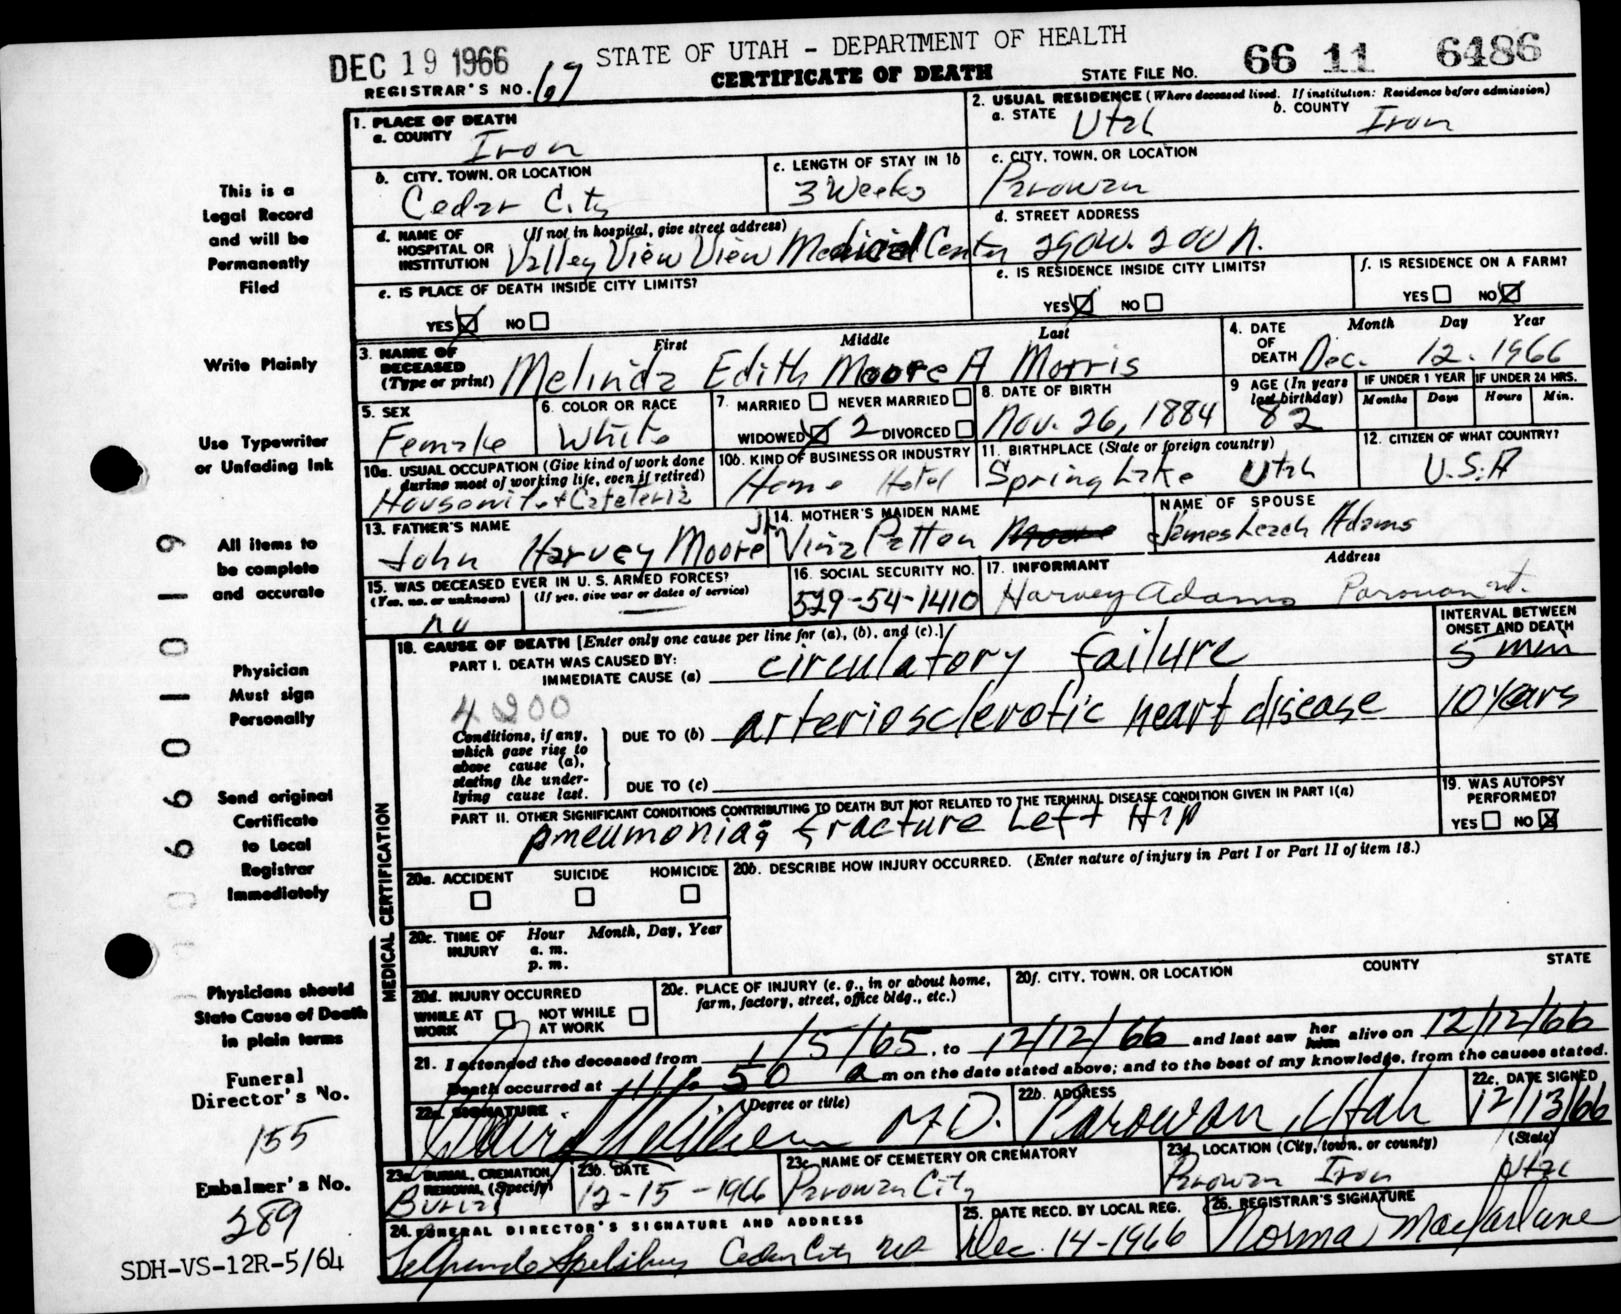 DEC 19 1966
STATE OF UTAH - DEPARTMENT OF HEALTH
CERTIFICATE OF DEATH
REGISTRAR'S NO. 167
STATE FILE NO. 66 11 6486
1. PLACE OF DEATH
a. COUNTY Iron
2. USUAL RESIDENCE (Where deceased lived. If institution: Residence before admission)
a. STATE Utah b. COUNTY Iron
b. CITY, TOWN, OR LOCATION Cedar City
c. LENGTH OF STAY IN 1b 3 Weeks
c. CITY, TOWN, OR LOCATION Parowan
d. NAME OF HOSPITAL OR INSTITUTION (If not in hospital, give street address) Valley View View Medical Center
d. STREET ADDRESS 290 W. 200 N.
e. IS PLACE OF DEATH INSIDE CITY LIMITS?
YES NO
e. IS RESIDENCE INSIDE CITY LIMITS?
YES NO
f. IS RESIDENCE ON A FARM?
YES NO
3. NAME OF DECEASED (Type or print) First Middle Last
Melinda Edith Moore A Morris
4. DATE OF DEATH Month Day Year
Dec. 12. 1966
5. SEX Female
6. COLOR OR RACE White
7. MARRIED NEVER MARRIED
WIDOWED 2 DIVORCED
8. DATE OF BIRTH Nov. 26, 1884
9 AGE (In years last birthday) 82
IF UNDER 1 YEAR Months Days
IF UNDER 24 HRS. Hours Min.
10a. USUAL OCCUPATION (Give kind of work done during most of working life, even if retired)
Housewife & Cafeteria
10b. KIND OF BUSINESS OR INDUSTRY Home Hotel
11. BIRTHPLACE (State or foreign country) Spring Lake Utah
12. CITIZEN OF WHAT COUNTRY? U.S.A
13. FATHER'S NAME John Harvey Moore Jr
14. MOTHER'S MAIDEN NAME Vina Patten Moore
NAME OF SPOUSE James Leach Adams
15. WAS DECEASED EVER IN U.S. ARMED FORCES?
(Yes, no, or unknown) (If yes, give war or dates of service)
no
16. SOCIAL SECURITY NO. 529-54-1410
17. INFORMANT Address
Harvey Adams Parowan ut.
18. CAUSE OF DEATH [Enter only one cause per line for (a), (b), and (c).]
INTERVAL BETWEEN ONSET AND DEATH
PART I. DEATH WAS CAUSED BY:
IMMEDIATE CAUSE (a) circulatory failure 5 min
4200
Conditions, if any, which gave rise to above cause (a), stating the underlying cause last.
DUE TO (b) arteriosclerotic heart disease 10 years
DUE TO (c)
PART II. OTHER SIGNIFICANT CONDITIONS CONTRIBUTING TO DEATH BUT NOT RELATED TO THE TERMINAL DISEASE CONDITION GIVEN IN PART I(a)
pneumonia; fracture Left Hip
19. WAS AUTOPSY PERFORMED?
YES NO
MEDICAL CERTIFICATION
20a. ACCIDENT SUICIDE HOMICIDE
20b. DESCRIBE HOW INJURY OCCURRED. (Enter nature of injury in Part I or Part II of item 18.)
20c. TIME OF INJURY Hour Month, Day, Year
a. m.
p. m.
20d. INJURY OCCURRED
WHILE AT WORK NOT WHILE AT WORK
20e. PLACE OF INJURY (e. g., in or about home, farm, factory, street, office bldg., etc.)
20f. CITY, TOWN, OR LOCATION COUNTY STATE
21. I attended the deceased from 1/5/65, to 12/12/66 and last saw her him alive on 12/12/66
Death occurred at 50 a m on the date stated above; and to the best of my knowledge, from the causes stated.
22a. SIGNATURE (Degree or title) M.D.
22b. ADDRESS Parowan, Utah
22c. DATE SIGNED 12/13/66
23a. BURIAL, CREMATION, REMOVAL, (Specify) Burial
23b. DATE 12-15-1966
23c. NAME OF CEMETERY OR CREMATORY Parowan City
23d. LOCATION (City, town, or county) (State)
Parowan Iron Utah
24. FUNERAL DIRECTOR'S SIGNATURE AND ADDRESS
Cedar City
25. DATE RECD. BY LOCAL REG. Dec. 14-1966
26. REGISTRAR'S SIGNATURE Norma Macfarlane
This is a
Legal Record
and will be
Permanently
Filed
Write Plainly
Use Typewriter
or Unfading Ink
All items to
be complete
and accurate
Physician
Must sign
Personally
Send original
Certificate
to Local
Registrar
Immediately
Physicians should
State Cause of Death
in plain terms
Funeral
Director's No.
155
Embalmer's No.
289
SDH-VS-12R-5/64